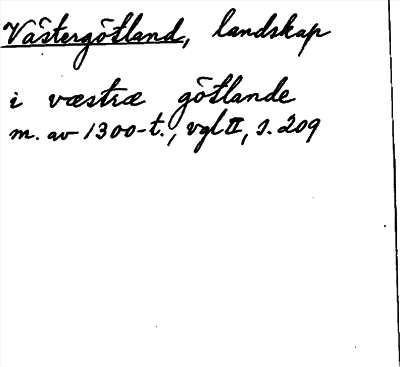 Västergötland, landskap
i væstræ götlande
m. av 1300-t., vgl II, s. 209